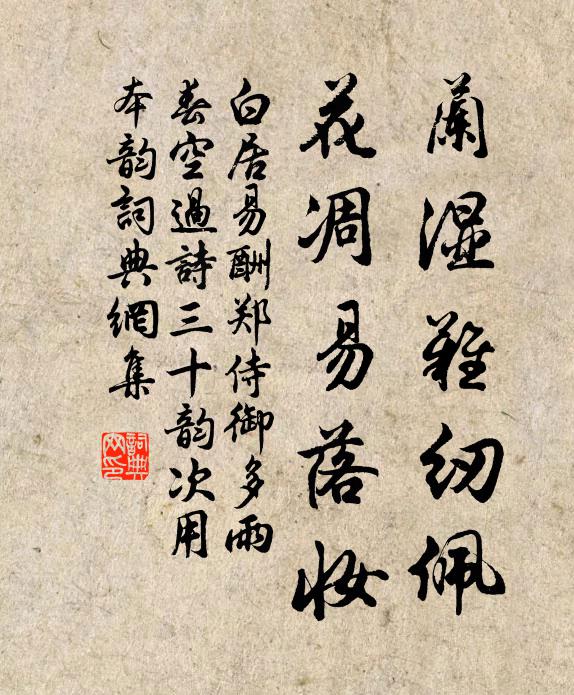 蘭濕難紉佩
花凋易落妝
白居易酬郑侍御多雨
春空過詩三十韵次用
本韵詞典網集
詞典網印